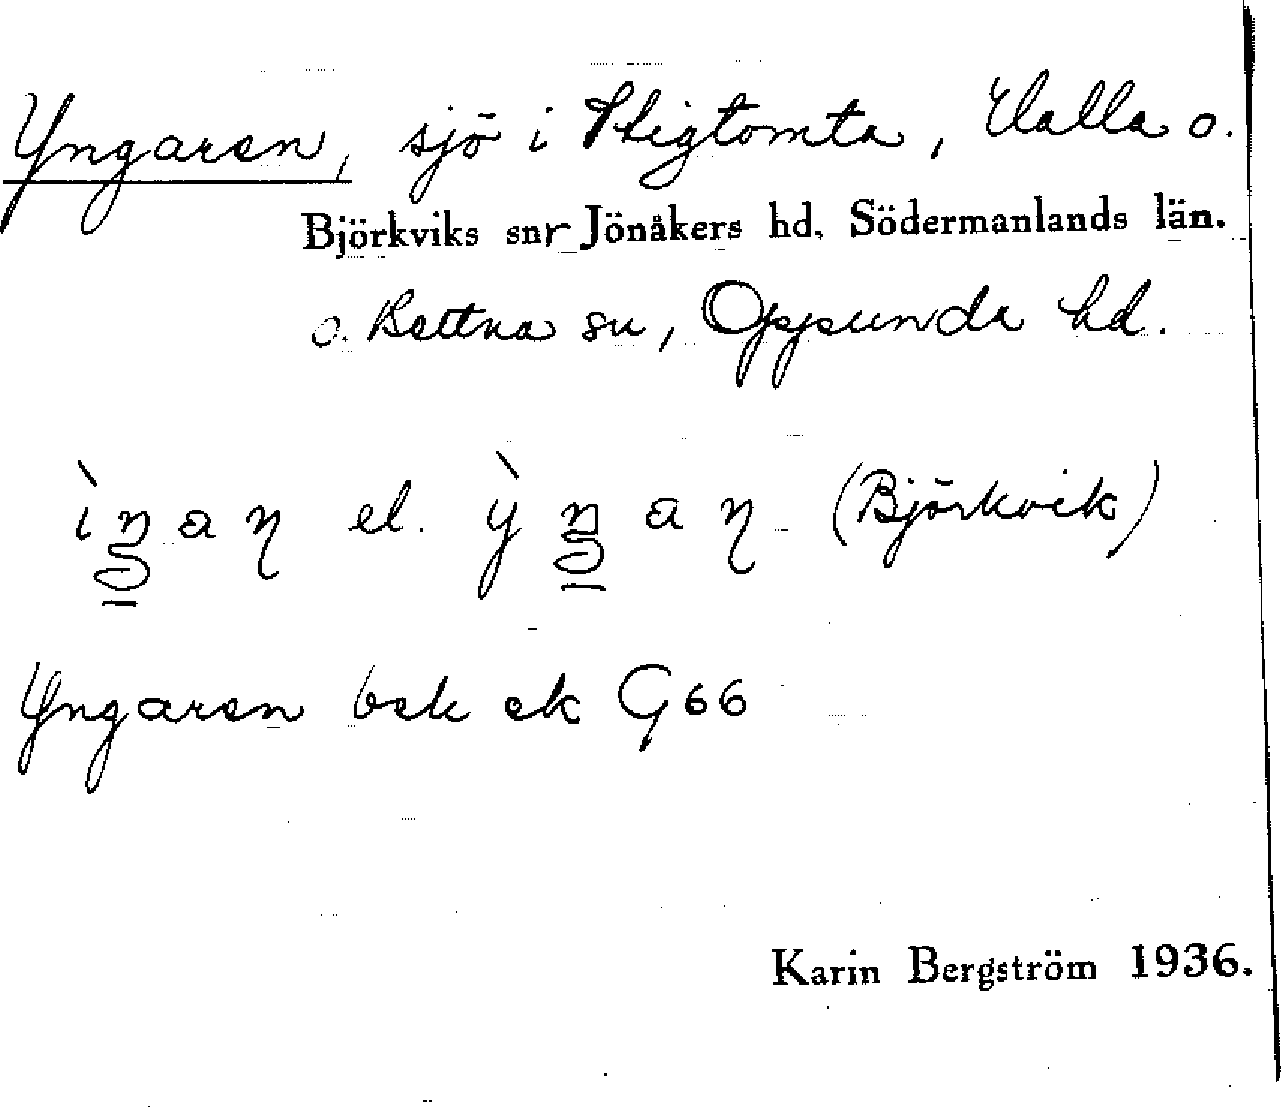 Yngaren, sjö i Stigtomta, Halla o.
Björkviks snr Jönåkers hd, Södermanlands län.
o. Bettna sn, Oppunda hd.
ìŋaη el. ỳŋaη (Björkvik)
Yngaren bek ek G66
Karin Bergström 1936.